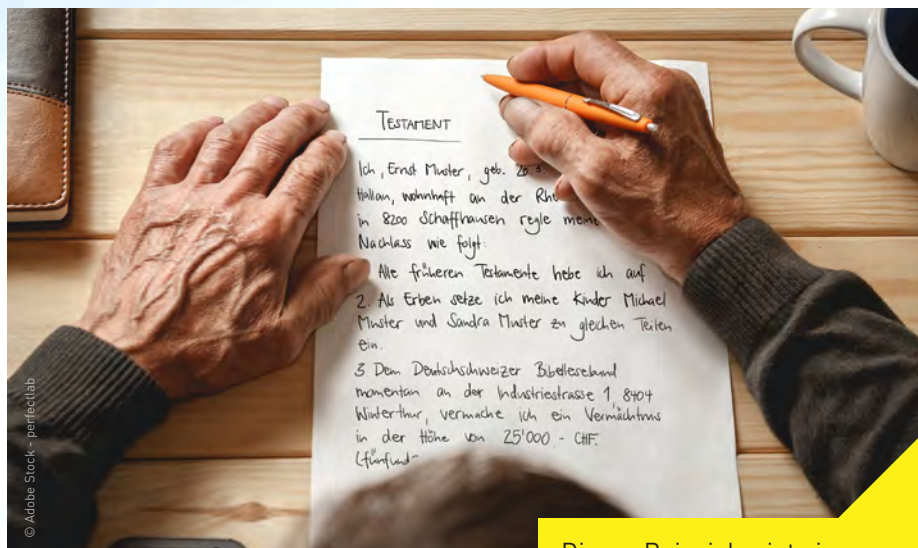 TESTAMENT
Ich, Ernst Muster, geb.
Hallau, wohnhaft an der
in 8200 Schaffhausen regle meine
Nachlass wie folgt:
Alle früheren Testamente hebe ich auf
2. Als Erben setze ich meine Kinder Michael
Muster und Sandra Muster zu gleichen Teilen
ein.
3. Dem Deutschschweizer Bibellesebund
momentan an der Industriestrasse 1, 8404
Winterthur, vermache ich ein Vermächtnis
in der Höhe von 25'000.- CHF.
(fünfund-
© Adobe Stock - perfectlab